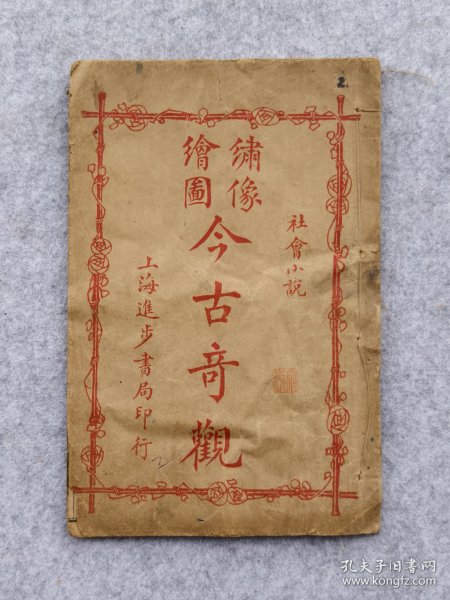 2.
社會小說
繡像
繪圖
今古奇觀
上海進步書局印行
2
孔夫子旧书网
www.kongfz.com